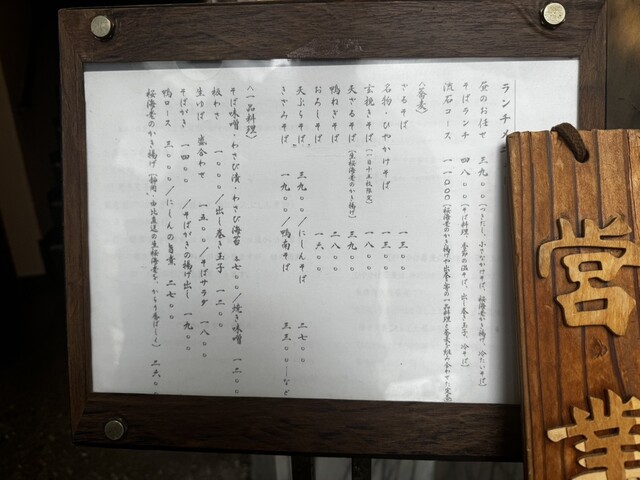 ランチメ
昼のお任せ 三九〇〇(つきだし、小さなかけそば、桜海老かき揚げ、冷たいそば)
そばランチ 四八〇〇(そば料理、季節の温そば、出し巻き玉子、冷そば)
流石コース 一一〇〇〇(桜海老のかき揚げや出し巻等の一品料理と蕎麦を組み合わせた
〈蕎麦〉
ざるそば 一三〇〇
名物・ひやかけそば 一三〇〇
玄挽きそば(一日十五枚限定) 一八〇〇
天ざるそば(生桜海老のかき揚げ) 三九〇〇
鴨ねぎそば 二八〇〇
おろしそば 一六〇〇
天ぷらそば 三九〇〇/にしんそば 二七〇〇
きざみそば 一九〇〇/鴨南そば 三三〇〇―など
〈一品料理〉
そば味噌・わさび漬・わさび海苔 各七〇〇/焼き味噌 一二〇〇
板わさ 一〇〇〇/出し巻き玉子 一二〇〇
生ゆば 盛合わせ 一五〇〇/そばサラダ 一八〇〇
そばがき 一四〇〇/そばがきの揚げ出し 一九〇〇
鴨ロース 三〇〇〇/にしんの旨煮 二七〇〇
桜海老のかき揚げ(静岡・由比直送の生桜海老を、からり香ばしく) 二六〇〇
営業